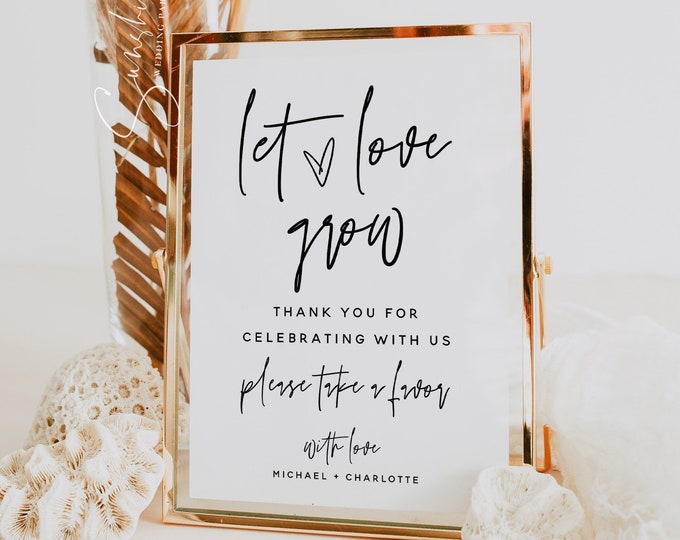 let love
grow
THANK YOU FOR
CELEBRATING WITH US
please take a favor
with love
MICHAEL + CHARLOTTE